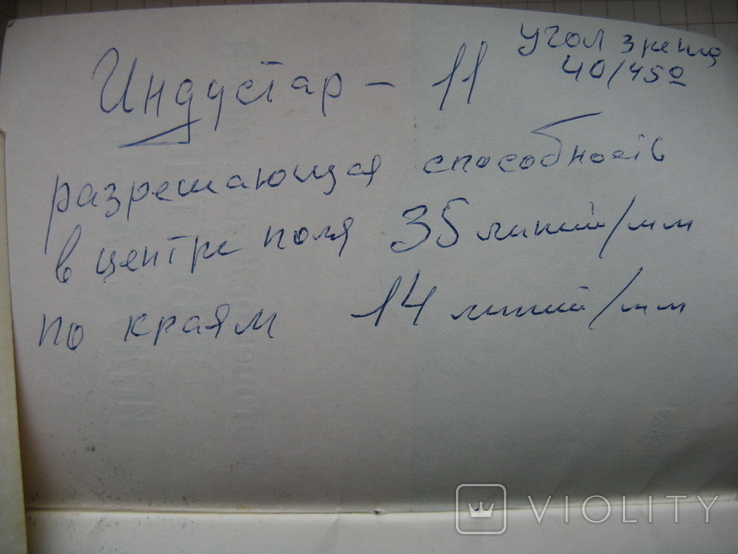 угол зрения
40/45º
Индустар – 11
разрешающая способность
в центре поля 35 линий/мм
по краям 14 линий/мм
VIOLITY